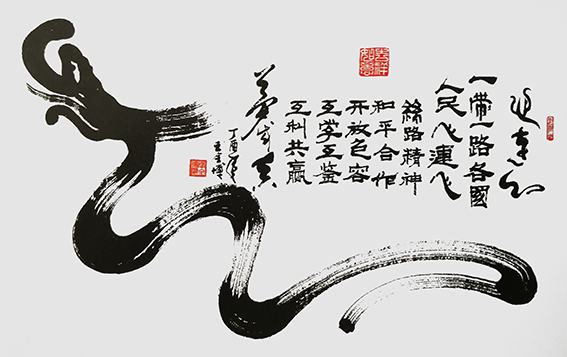 一帶一路各國
人民心連心
絲路精神
和平合作
开放包容
互学互鉴
互利共赢
夢成真
丁酉